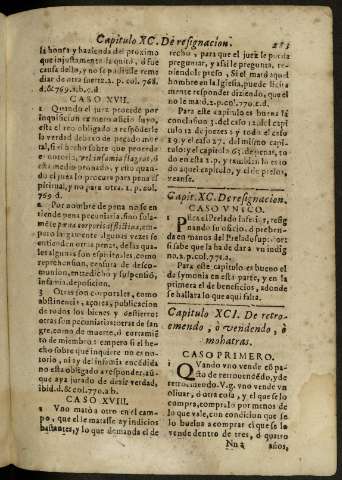 Capitulo XC. De resignacion. 283
la honra y hazienda del proximo
que injustamente la quitò, ò fue
causa dello, y no se pudiesse reme
diar de otra suerte. 2. p. col. 768.
d. & 769. a. b. c. d
CASO XVII.
1 Quando el juez procede por
inquisicion ex mero officio suyo,
està el reo obligado a responderle
la verdad debaxo de pecado mor
tal, si el hecho sobre que procede
es notorio, vel infamia flagrat, ò
esta medio prouado, y esto quan-
do el juez lo procura para pena es
piritual, y no para otra. 2. p. col.
769. d.
2 Por nombre de pena no se en
tiende pena pecuniaria, sino sola-
mēte pœna corporis afflictiua, em-
pero largamente algunas vezes se
entienden otras penas, delas qua-
les algunas son espirituales, como
reprehension, censura de descomo-
munion, entredicho y suspensiō,
infamia, deposicion.
3 Otras son corporales, como
abstinencia, açotes, publicacion
de todos los bienes y destierros
otras son pecuniarias: otras de san
gre, como de muerte, ò cortamiē
to de miembros: empero si el he-
cho sobre que inquiere no es no-
torio, ni ay del infamia encēdida
no esta obligado a responder, aū-
que aya jurado de dezir verdad,
ibid. d. & col. 770. a b.
CASO XVIII.
1 Vno matò a otro en el cam-
po, que el le matasse ay indicios
bastantes, y lo que demanda es de
recho, para que el juez le pueda
preguntar, y assi le pregunta, te-
niendole preso, Si el matò aquel
hombre en la Iglesia, puede licita
mente responder diziendo, que el
no le matò. 2. p. col. 770. c. d.
Para este capitulo es buena la
conclusion 3. del caso 12. del capi
tulo 12 de juezes 2 y todo el caso
29. y el caso 27. del mismo capi-
tulo y el capitulo 65. de penas, to
do en esta 2. p. y tambien lo es to
do aquel capitulo, y el de pleitos,
veanse.
Capit. XC. De resignacion.
CASO VNICO.
Peca el Prelado inferior, resig
nando su oficio, ò preben-
da en manos del Prelado superior
si sabe que la ha de dar a vn indig
no. 2. p. col. 771. a.
Para este capitulo es bueno el
de symonia en esta parte, y en la
primera el de beneficios, adonde
se hallara lo que aqui falta.
Capitulo XCI. De retro-
emendo, ò vendendo, ò
mohatras.
CASO PRIMERO.
1 Quando vno vende cō pa-
cto de retrouendēdo, y de
retrouendo. V. g. vno vende vn
oliuar, ò otra cosa, y el que se lo
compra, compralo por menos de
lo que vale, con condicion que se
lo buelua a comprar el que se lo
vende dentro de tres, ò quatro
Nn 2 años,